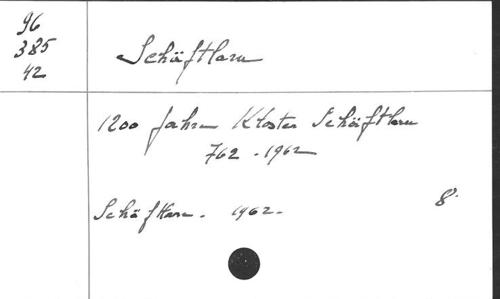 96
385
42
Schäftlarn
1200 Jahre Kloster Schäftlarn
762 - 1962
Schäftlarn - 1962 -
8°